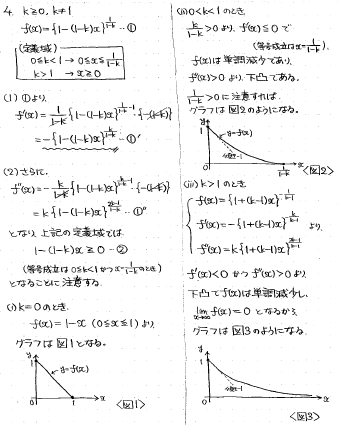 4. k≧0, k≠1
f(x)={1-(1-k)x}^{1/(1-k)} …①
(定義域)
0≦k<1 → 0≦x≦1/(1-k)
k>1 → x≧0
(1) ①より,
f'(x)=1/(1-k){1-(1-k)x}^{1/(1-k)-1}・{-(1-k)}
=-{1-(1-k)x}^{k/(1-k)} …①'
(2) さらに,
f''(x)=-k/(1-k){1-(1-k)x}^{k/(1-k)-1}{-(1-k)}
=k{1-(1-k)x}^{(2k-1)/(1-k)} …①''
となり, 上記の定義域では
1-(1-k)x≧0 …②
(等号成立は0≦k<1かつx=1/(1-k)のとき)
となることに注意する.
(i) k=0のとき.
f(x)=1-x (0≦x≦1)より
グラフは図1となる.
y
1
y=f(x)
0
1
x
<図1>
(ii) 0<k<1のとき.
k/(1-k)>0より, f'(x)≦0で
(等号成立はx=1/(1-k)).
f(x)は単調減少であり,
f''(x)>0より, 下凸である.
1/(1-k)>0に注意すれば,
グラフは図2のようになる.
y
1
y=f(x)
傾き-1
0
1/(1-k)
x
<図2>
(iii) k>1のとき
f(x)={1+(k-1)x}^{-1/(k-1)}
f'(x)=-{1+(k-1)x}^{-k/(k-1)} より
f''(x)=k{1+(k-1)x}^{-(2k-1)/(k-1)}
f'(x)<0かつf''(x)>0より,
下凸でf(x)は単調減少し,
lim x→∞ f(x)=0となるから,
グラフは図3のようになる.
y
1
傾き-1
0
x
<図3>